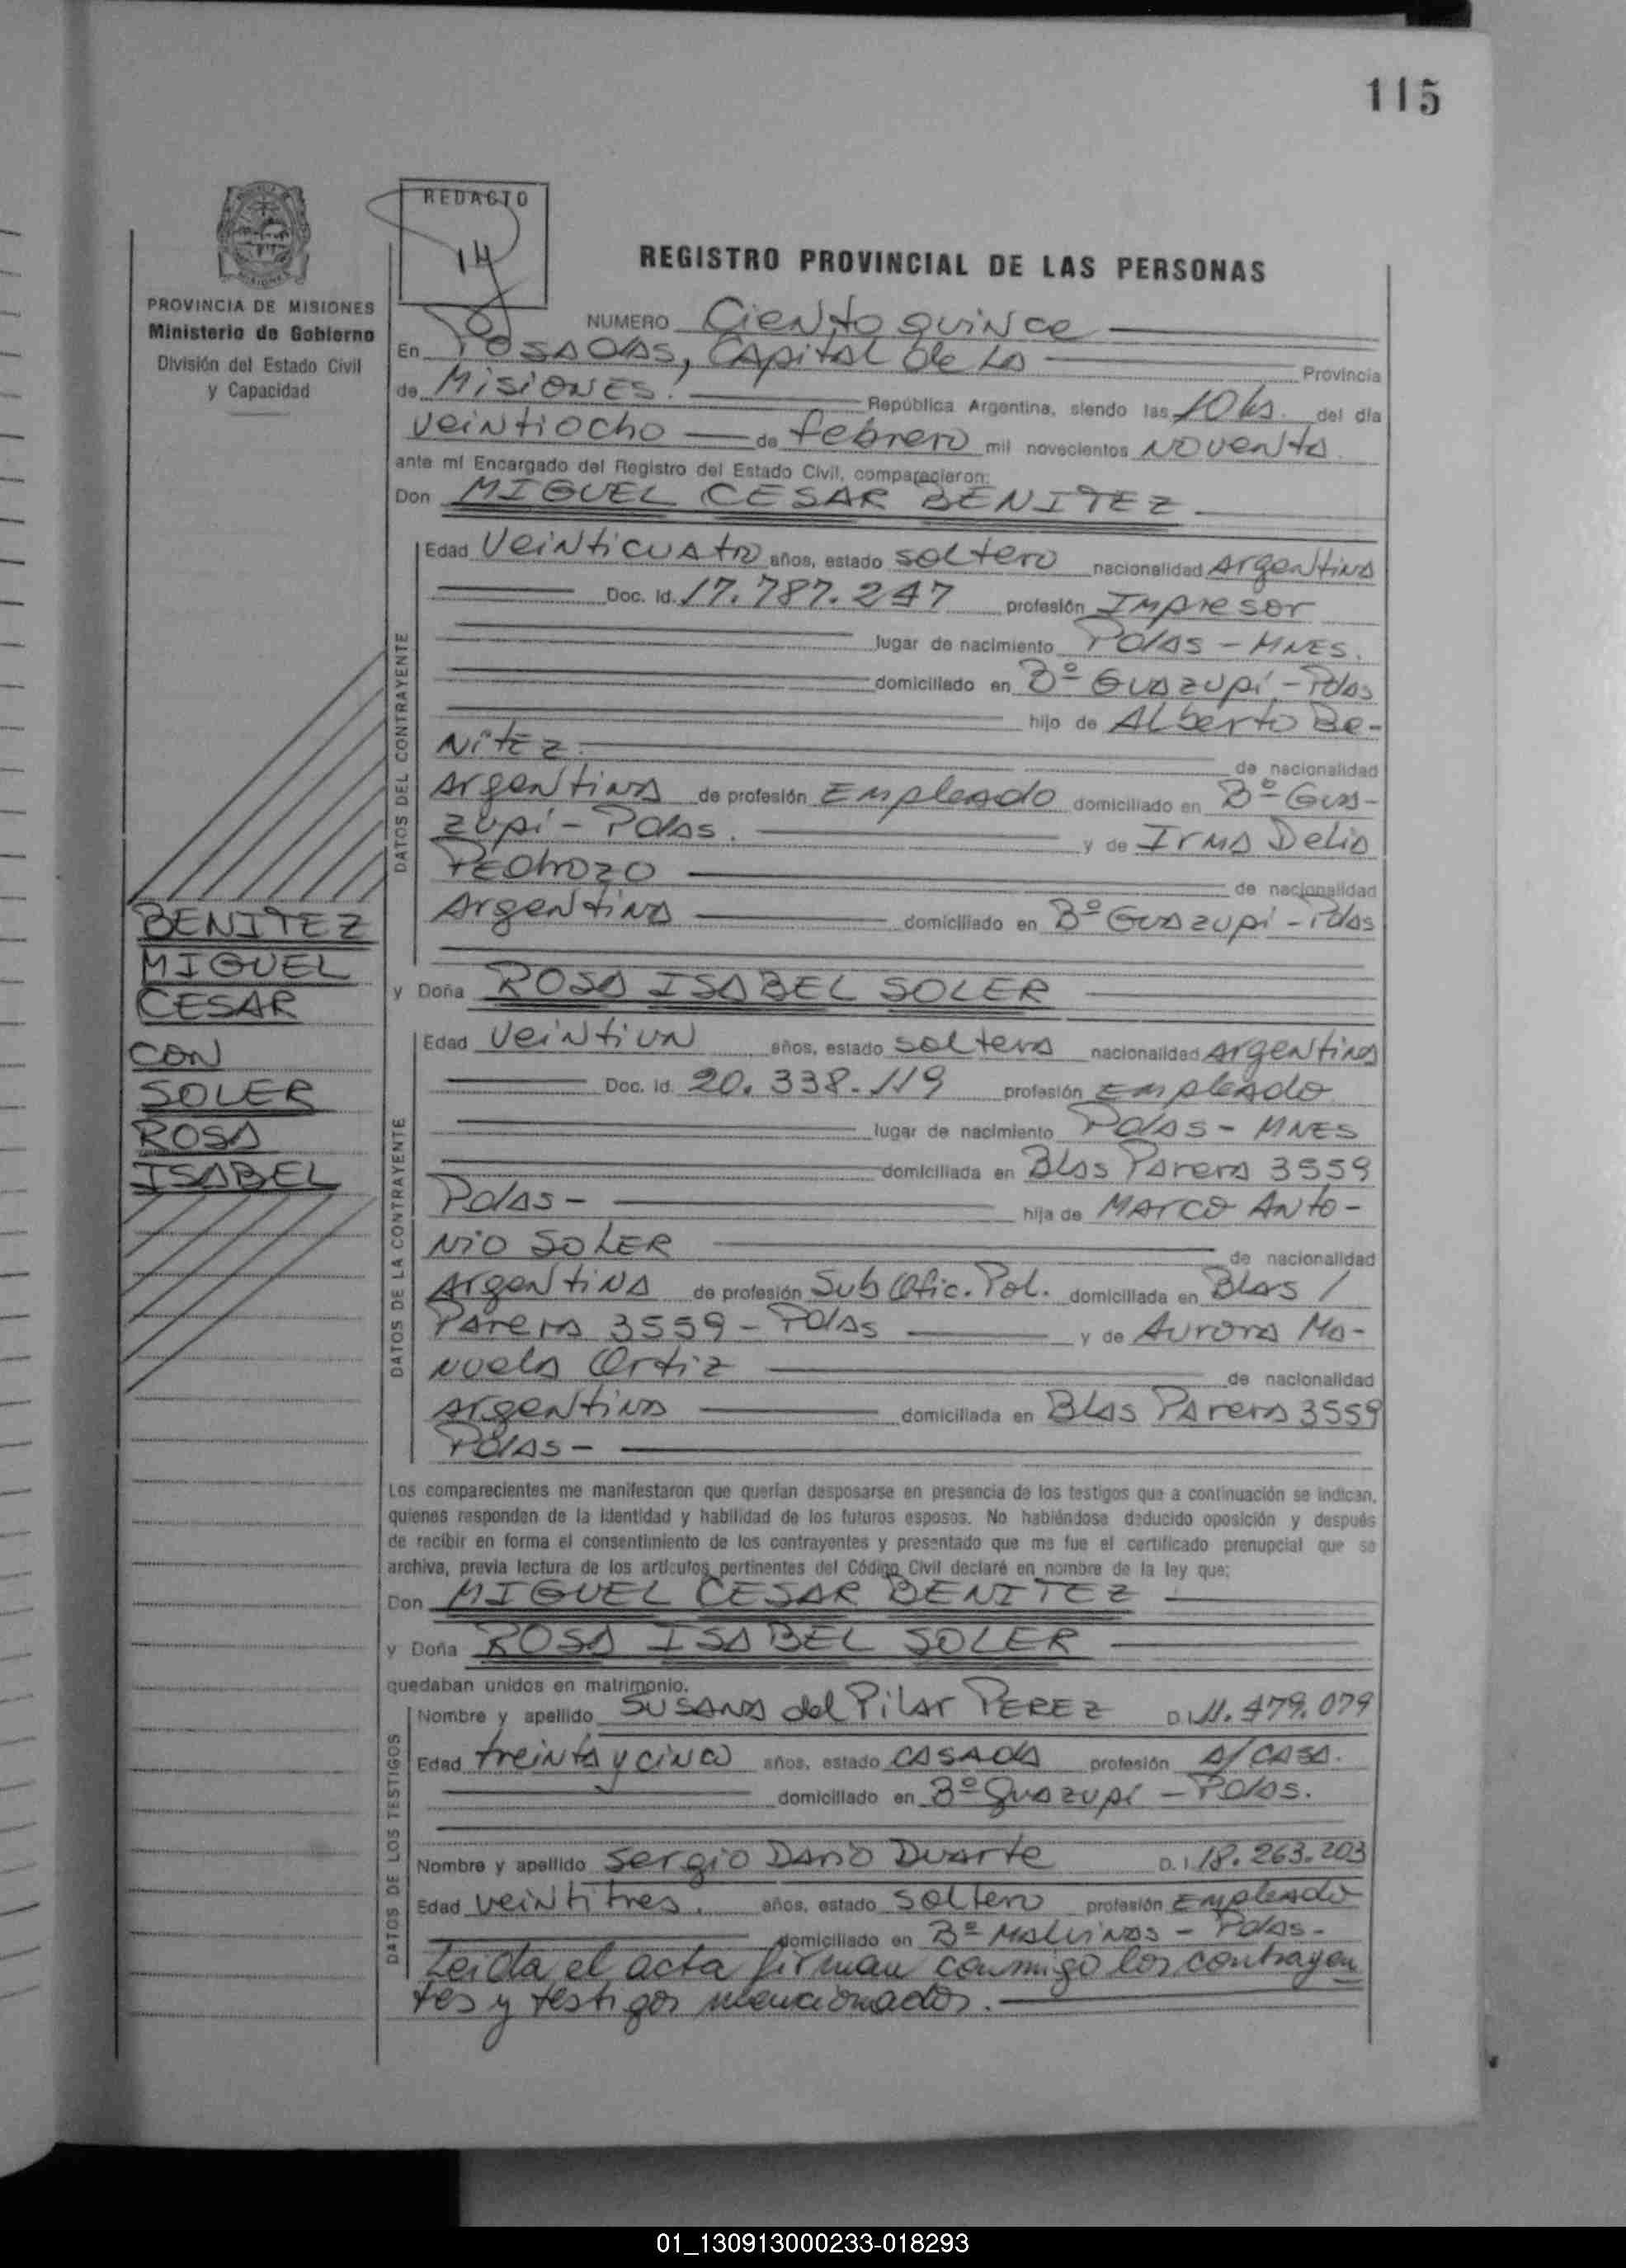 115
REDACTO
14
REGISTRO PROVINCIAL DE LAS PERSONAS
PROVINCIA DE MISIONES
Ministerio de Gobierno
División del Estado Civil
y Capacidad
NUMERO Ciento quince
En Posadas, Capital de la Provincia
de Misiones. República Argentina, siendo las 10 hs. del día
veintiocho de febrero mil novecientos noventa
ante mí Encargado del Registro del Estado Civil, comparecieron:
Don MIGUEL CESAR BENITEZ
DATOS DEL CONTRAYENTE
Edad Veinticuatro años, estado soltero nacionalidad Argentina
Doc. Id. 17.787.247 profesión Impresor
lugar de nacimiento Pdas - Mnes.
domiciliado en Bº Guazupí - Pdas
hijo de Alberto Be-
nitez. de nacionalidad
Argentina de profesión Empleado domiciliado en Bº Gua-
zupí - Pdas. y de Irma Delia
Pedrozo de nacionalidad
Argentina domiciliado en Bº Guazupí - Pdas
BENITEZ
MIGUEL
CESAR
CON
SOLER
ROSA
ISABEL
y Doña ROSA ISABEL SOLER
DATOS DE LA CONTRAYENTE
Edad Veintiun años, estado soltera nacionalidad Argentina
Doc. Id. 20.338.119 profesión Empleado
lugar de nacimiento Pdas - Mnes
domiciliada en Blas Parera 3559
Pdas - hija de Marco Anto-
nio Soler de nacionalidad
Argentina de profesión Sub Ofic. Pol. domiciliada en Blas /
Parera 3559 - Pdas y de Aurora Ma-
nuela Ortiz de nacionalidad
Argentina domiciliada en Blas Parera 3559
Pdas -
Los comparecientes me manifestaron que querían desposarse en presencia de los testigos que a continuación se indican,
quienes responden de la identidad y habilidad de los futuros esposos. No habiéndose deducido oposición y después
de recibir en forma el consentimiento de los contrayentes y presentado que me fue el certificado prenupcial que se
archiva, previa lectura de los artículos pertinentes del Código Civil declaré en nombre de la ley que:
Don MIGUEL CESAR BENITEZ
y Doña ROSA ISABEL SOLER
quedaban unidos en matrimonio.
DATOS DE LOS TESTIGOS
Nombre y apellido Susana del Pilar Perez D.I. 11.479.079
Edad treinta y cinco años, estado casada profesión A/casa.
domiciliado en Bº Guazupí - Pdas.
Nombre y apellido Sergio Dario Duarte D.I. 18.263.203
Edad veintitres. años, estado soltero profesión Empleado
domiciliado en Bº Malvinas - Pdas -
Leida el acta firman conmigo los contrayen
tes y testigos mencionados.
01_130913000233-018293